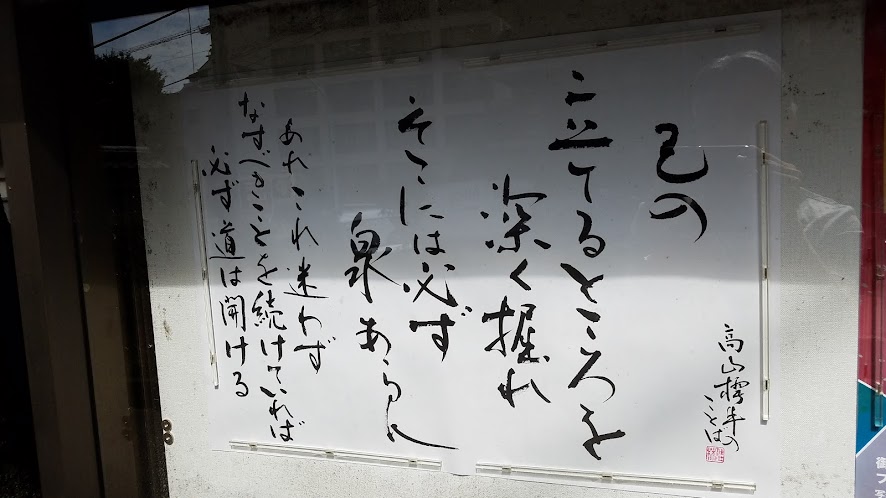 高山樗牛の
ことば
己の
立てるところを
深く掘れ
そこには必ず
泉あらん
あれこれ迷わず
なすべきことを続けていれば
必ず道は開ける